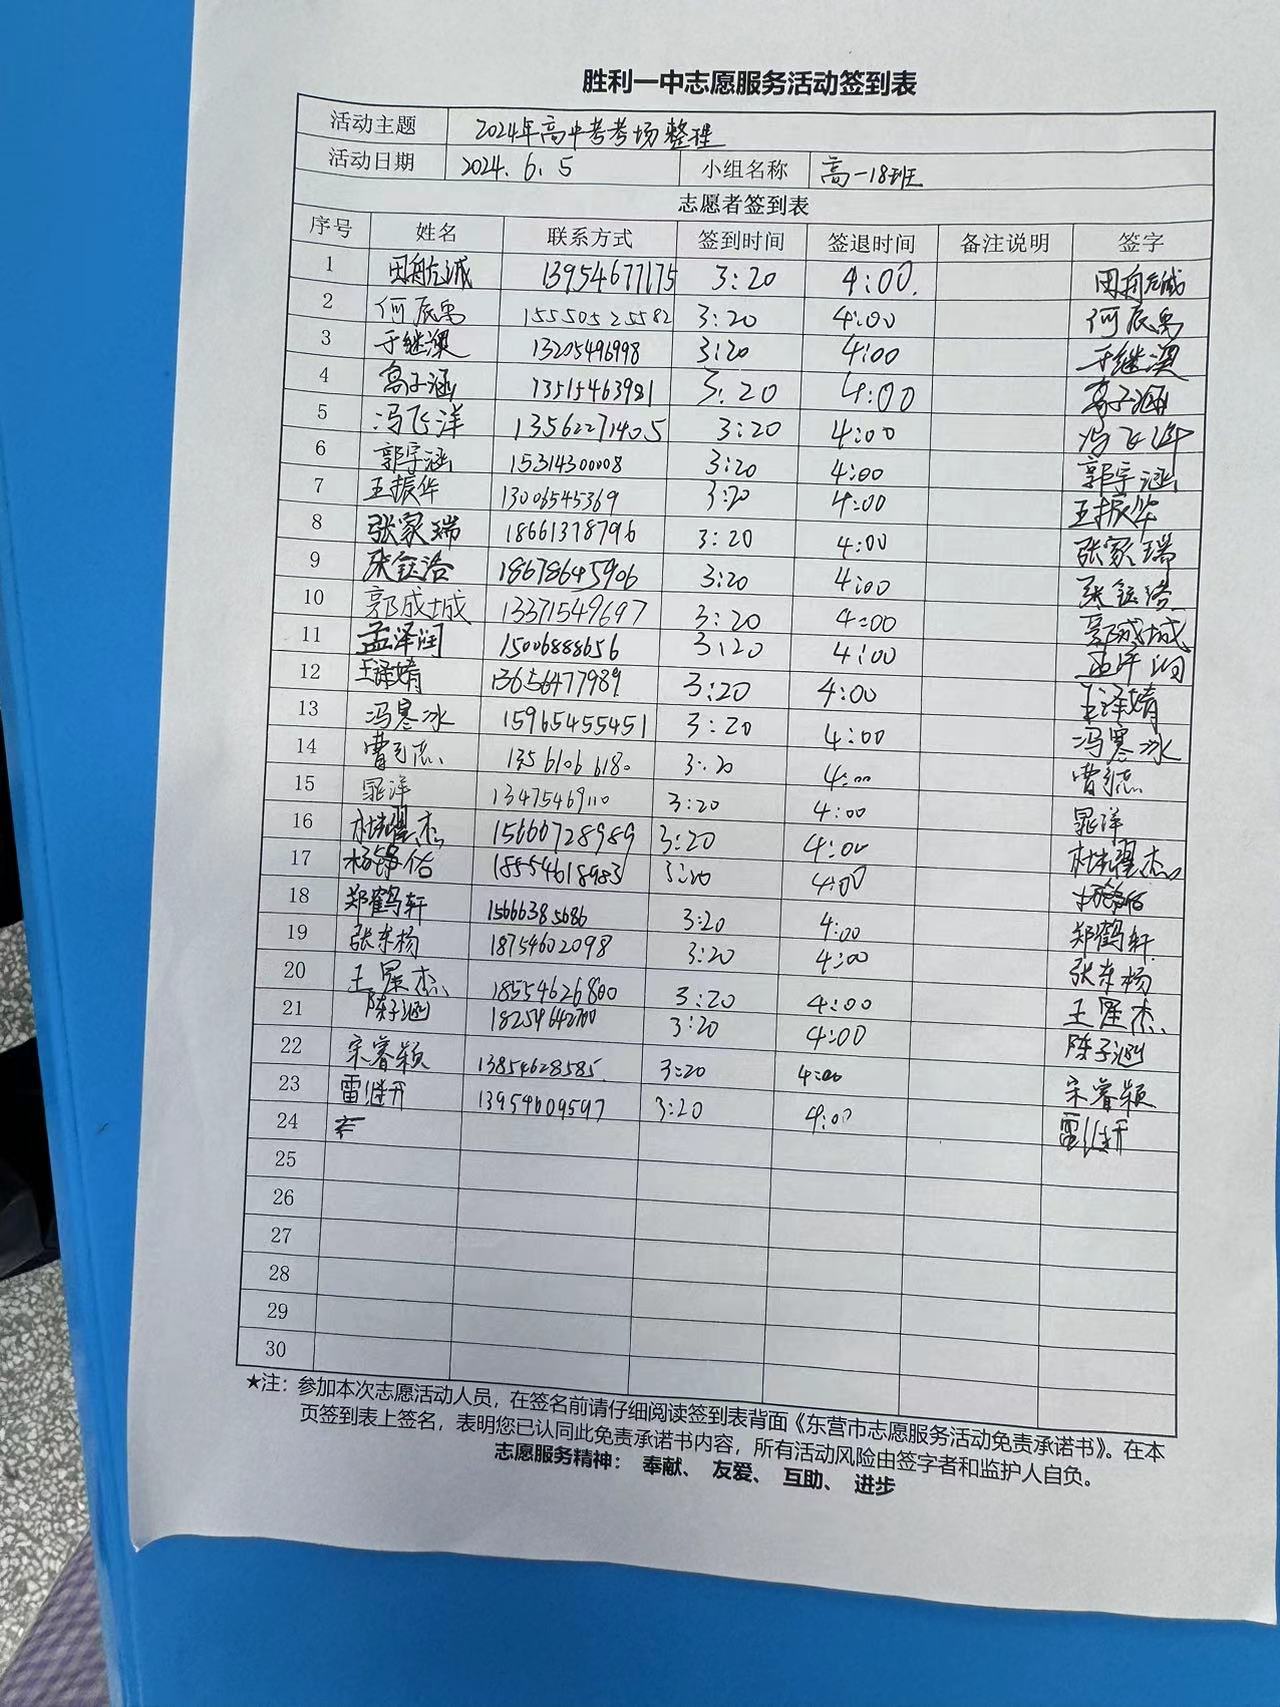 胜利一中志愿服务活动签到表
活动主题 2024年高中考考场整理
活动日期 2024.6.5 小组名称 高一18班
志愿者签到表
序号 姓名 联系方式 签到时间 签退时间 备注说明 签字
1 田舟弘诚 13954677175 3:20 4:00.
2 何辰禹 15550525582 3:20 4:00 何辰禹
3 于继澳 13205496998 3:20 4:00 于继澳
4 高子涵 13515463981 3:20 4:00 高子涵
5 冯飞洋 13562271405 3:20 4:00 冯飞洋
6 郭宇涵 15314300008 3:20 4:00 郭宇涵
7 王振华 13006545369 3:20 4:00 王振华
8 张家瑞 18661378796 3:20 4:00 张家瑞
9 张钰浩 18678645906 3:20 4:00 张钰浩
10 郭成城 13371549697 3:20 4:00 郭成城
11 孟泽润 15006888656 3:20 4:00 孟泽润
12 王泽婧 13656477989 3:20 4:00 王泽婧
13 冯寒冰 15965455451 3:20 4:00 冯寒冰
14 13561066180 3:20 4:00
15 晁洋 13475469110 3:20 4:00 晁洋
16 杜耀杰 15666728989 3:20 4:00 杜耀杰
17 18554618983 3:20 4:00
18 郑鹤轩 15666385686 3:20 4:00 郑鹤轩
19 张东杨 18754602098 3:20 4:00 张东杨
20 王星杰 18554626800 3:20 4:00 王星杰
21 陈子涵 18254642700 3:20 4:00 陈子涵
22 宋睿颖 13854628585. 3:20 4:00 宋睿颖
23 雷继开 13954609597 3:20 4:00 雷继开
24
25
26
27
28
29
30
★注：参加本次志愿活动人员，在签名前请仔细阅读签到表背面《东营市志愿服务活动免责承诺书》。在本
页签到表上签名，表明您已认同此免责承诺书内容，所有活动风险由签字者和监护人自负。
志愿服务精神： 奉献、 友爱、 互助、 进步